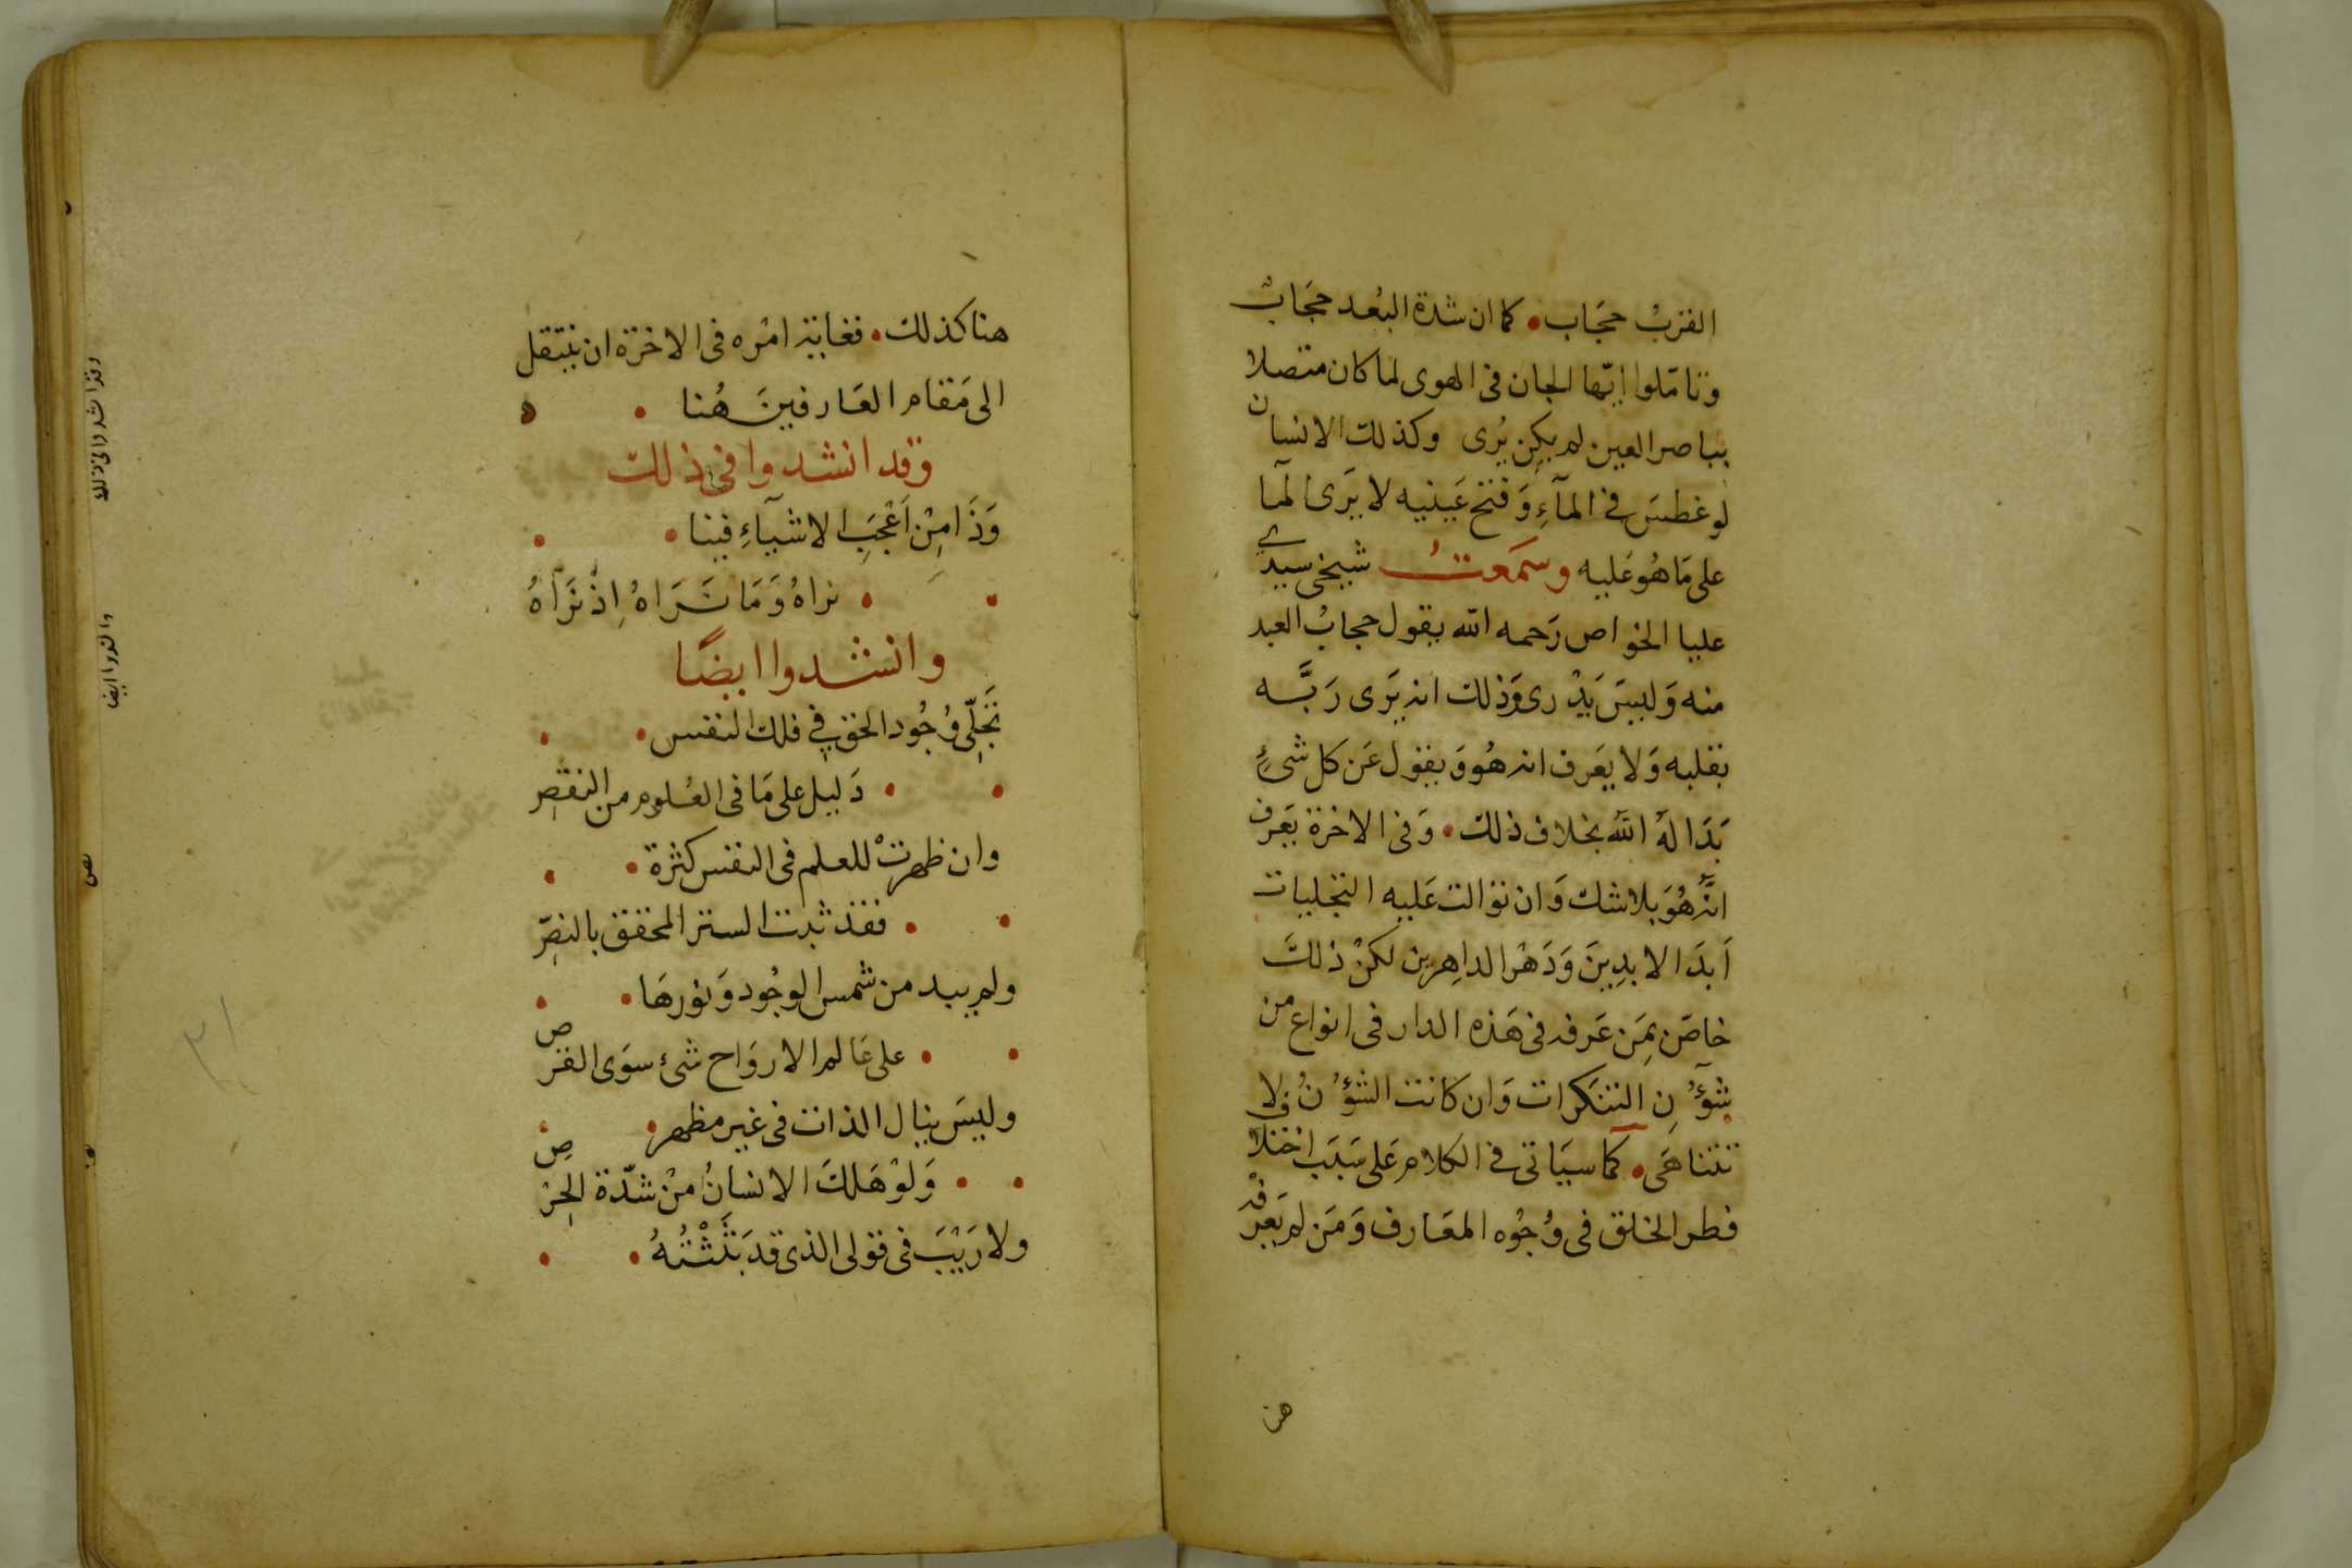 القربُ حجَاب • كما ان شدة البُعد حجَابٌ
وتامّلوا ايّها الجان فى الهوى لما كان متصلا
بباصر العين لم يكن يُرى وكذلك الانسان
لو غطسَ فى المآءِ وَفتح عَينيه لا يَرى لمآ
على مَا هُو عَليه وسمَعتُ شيخى سيدى
عليا الخواص رَحمه الله يقول حجابُ العبد
منه وَليسَ يَدْرى وَذلك انه يَرى رَبَّه
بقلبه وَلا يَعرف انه هُو وَيقول عَن كل شئٍ
بَدَا لهُ اللهُ بخلاف ذلك • وَفى الاخرة يَعرف
انَّه هُوَ بلا شك وَان توالت عَليه التجليات
اَبدَا لابدِينَ وَدَهْرَ الداهِرين لكنْ ذلكَ
خاصّ بِمَن عَرفه فى هَذه الدار فى انواع من
شؤُنِ التنكرات وَان كانت الشؤُنُ لا
تتناهَى • كما سيَاتى فى الكلام عَلى سَبَب اختلا
ف طر الخلق فى وُجُوه المعَارف وَمَن لم يَعرفْه
هنا
هنا كذلك • فغاية امْره فى الاخرة ان ينتقل
الى مَقام العَارفينَ هُنا •
وَقد انشدوا فى ذلك
وَذَا مِنْ اَعْجَبِ الاشيآءِ فينا •
• نراهُ وَمَا نَرَاهُ اِذْ نَرَاهُ
وانشدوا ايضًا
تَجَلِّى وُجُود الحق فِى فلك النفس •
• دَليل على مَا فى العُلوم من النقصِ
وان ظهرتْ للعلم فى النفس كثرة •
• فقد ثبت الستر المحقق بالنصِّ
ولم يبد من شمس الوجُود وَنورهَا •
• على عَالم الارواح شئ سوَى القرص
وليسَ ينال الذات فى غير مظهر •
• وَلوْ هَلكَ الانسانُ مِنْ شدّة الحِرْصِ
ولا رَيْبَ فى قولى الذى قد بَثَثْتُهُ •
٣١